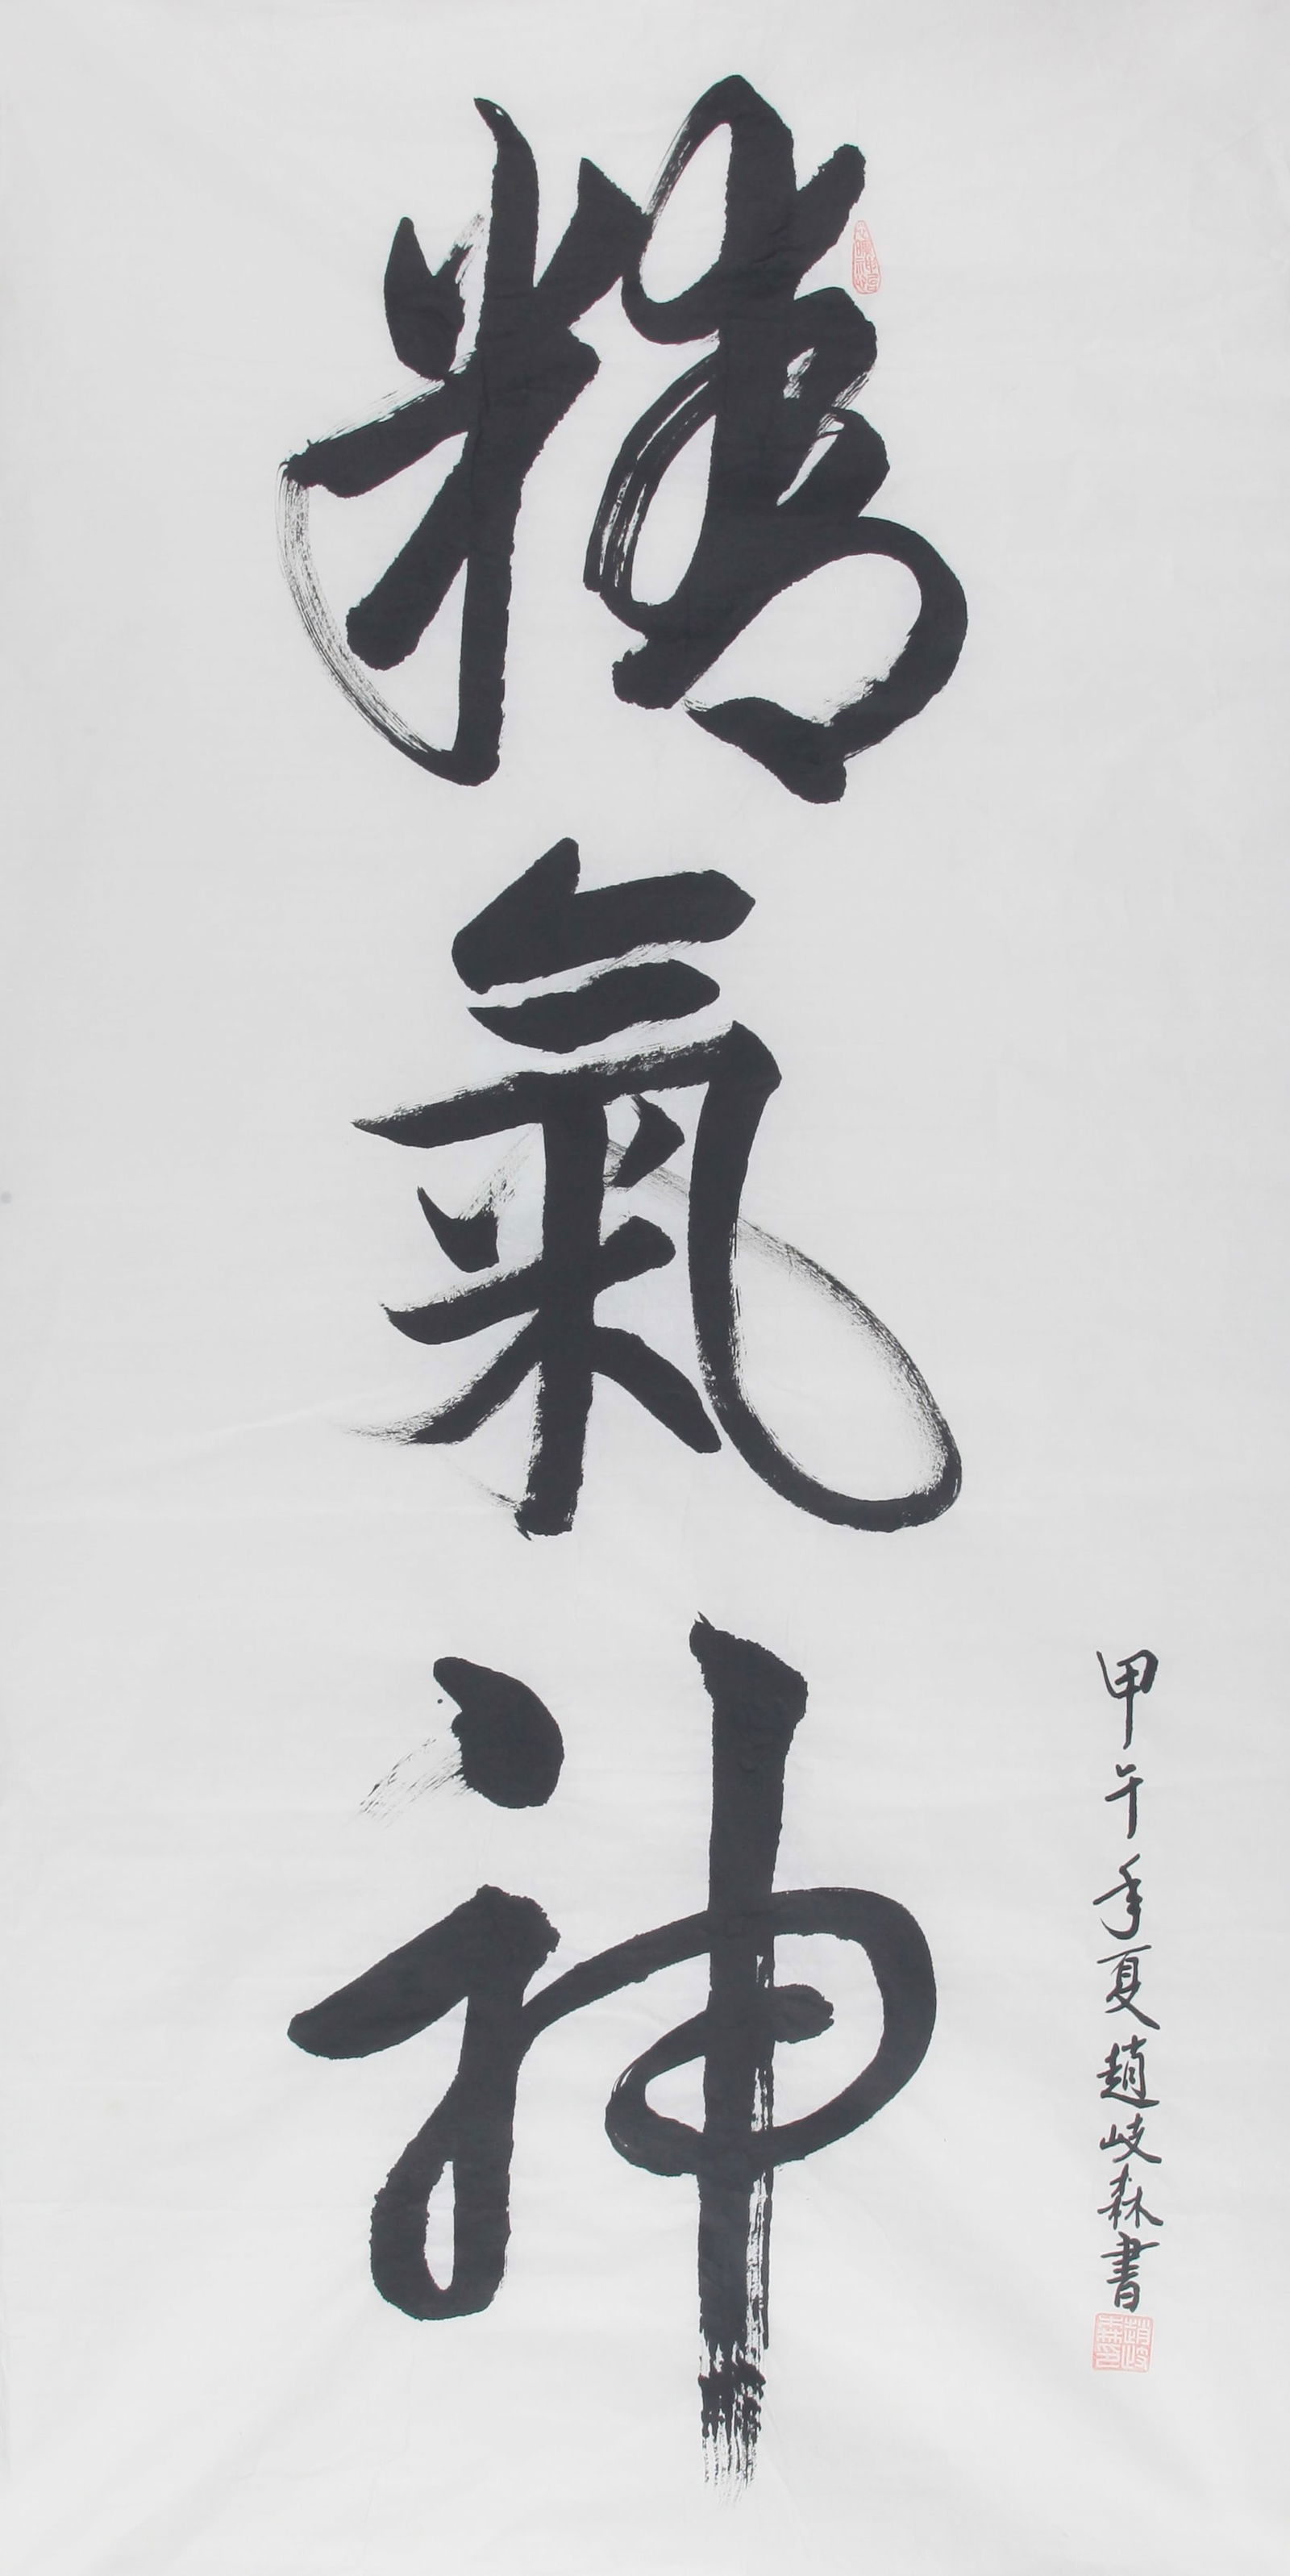 精氣神
甲午年夏趙岐森書